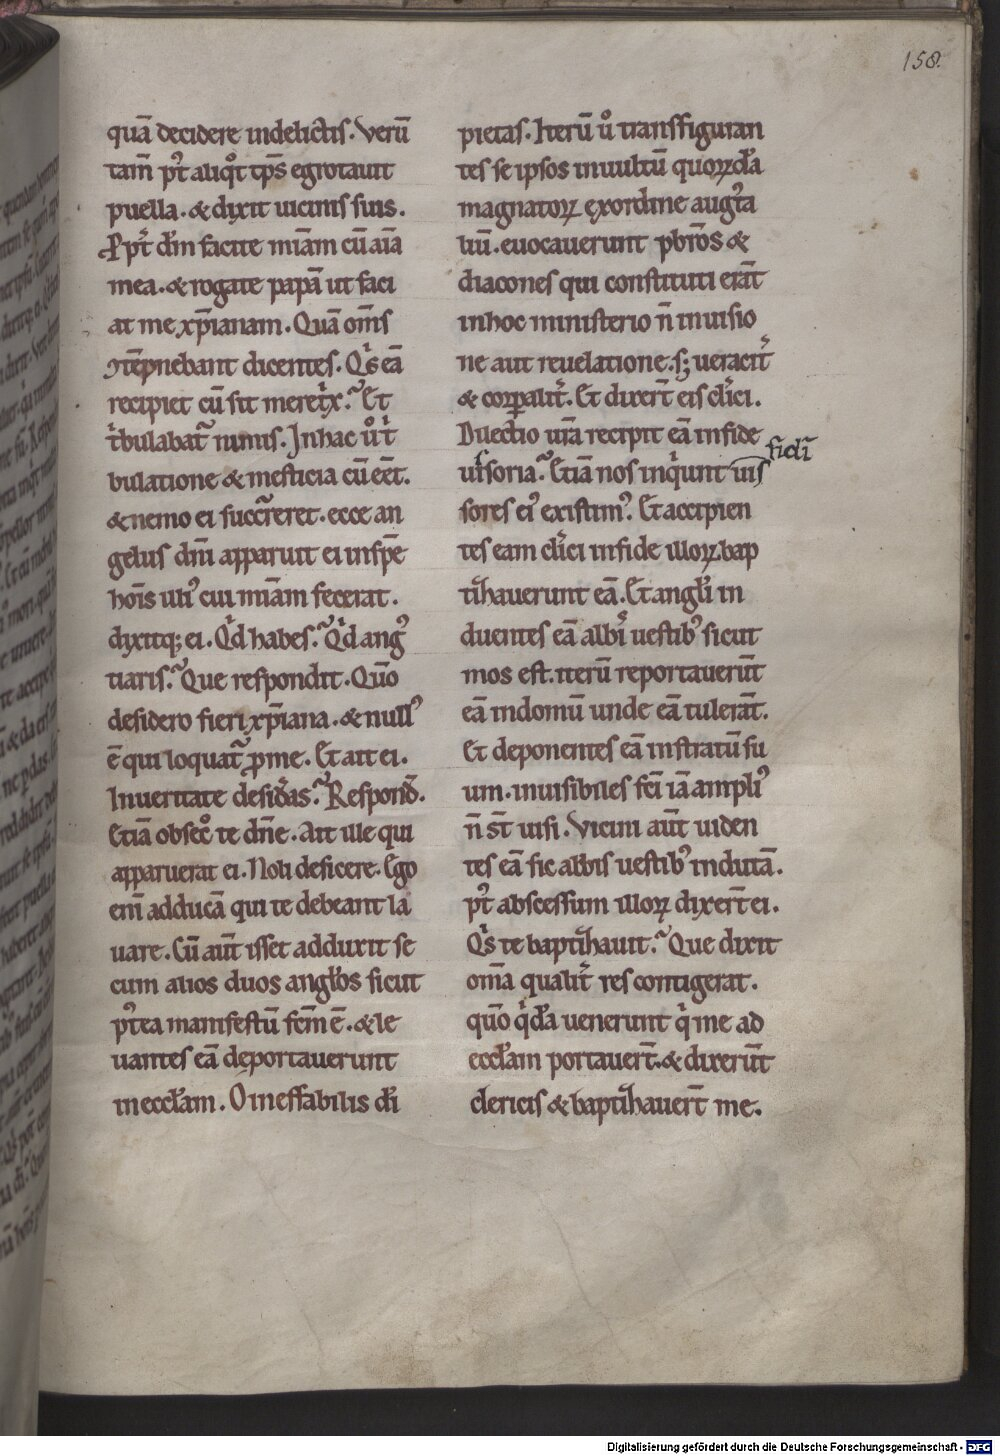 158.
quā decidere indelictis. Verū
tam̄ p̾t aliq̊t tp̄s egrotauit
puella. & dixit uicinis suis.
Ppt̾ dm̄ facite miām cū aīa
mea. & rogate papā ut faci
at me xp̄ianam. Quā om̄s
ꝯtēpnebant dicentes. Qͥs eā
recipiet cū sit meretͥx? Et
tͥbulabat᷑ nimis. Inhac ů tͥ
bulatione & mesticia cū eēt.
& nemo ei succr̄reret. ecce an
gelus dn̄i apparuit ei inspē
hoīs uiꝰ cui miām fecerat.
dixitq; ei. Qͥd habes? Qͥd angꝰ
tiaris? Que respondit. Qūo
desidero fieri xp̄iana. & nullꝰ
ē qui loquat᷑ ꝓme. Et ait ei.
Inueritate desid̾as? Respond̄.
Etiā obsec̊ te dn̄e. Ait ille qui
apparuerat ei. Noli deficere. Ego
enī adducā qui te debeant la
uare. Cū aūt isset adduxit se
cum alios duos angłos sicut
p̾tea manifestū fcm̄ ē. & le
uantes eā deportauerunt
inecclam̄. O ineffabilis di
pietas. Iterū ů transfiguran
tes se ipsos inuultū quorꝝdā
magnatorꝝ exordine augᷤta
liū. euocauerunt pbr̄os &
diacones qui constituti erāt
inhoc ministerio n̄ inuisio
ne aut reuelatione. sꝫ ueracit̾
& corꝑalit̾. Et dixer̄t eis clͥci.
Dilectio urā recipit eā infide
ursoria? Etiā nos inqͥunt uis
fidī
sores eiꝰ existimꝰ. Et accipien
tes eam clͥci infide illorꝝ bap
tihauerunt eā. Et angłi in
duentes eā albͥ uestibꝰ sicut
mos est. iterū reportauerūt
eā indomū unde eā tulerāt.
Et deponentes eā instratū su
um. inuisibiles fcī iā ampliꝰ
n̄ st̄ uisi. Vicini aūt uiden
tes eā sic albis uestibꝰ indutā.
p̾t abscessum illorꝝ dixer̄t ei.
Qͥs te baptihauit? Que dixit
om̄a qualit̾ res contigerat.
quō qͥdā uenerunt qͥ me ad
ecclam̄ portauer̄t. & dixerūt
clericis & baptihauer̄t me.